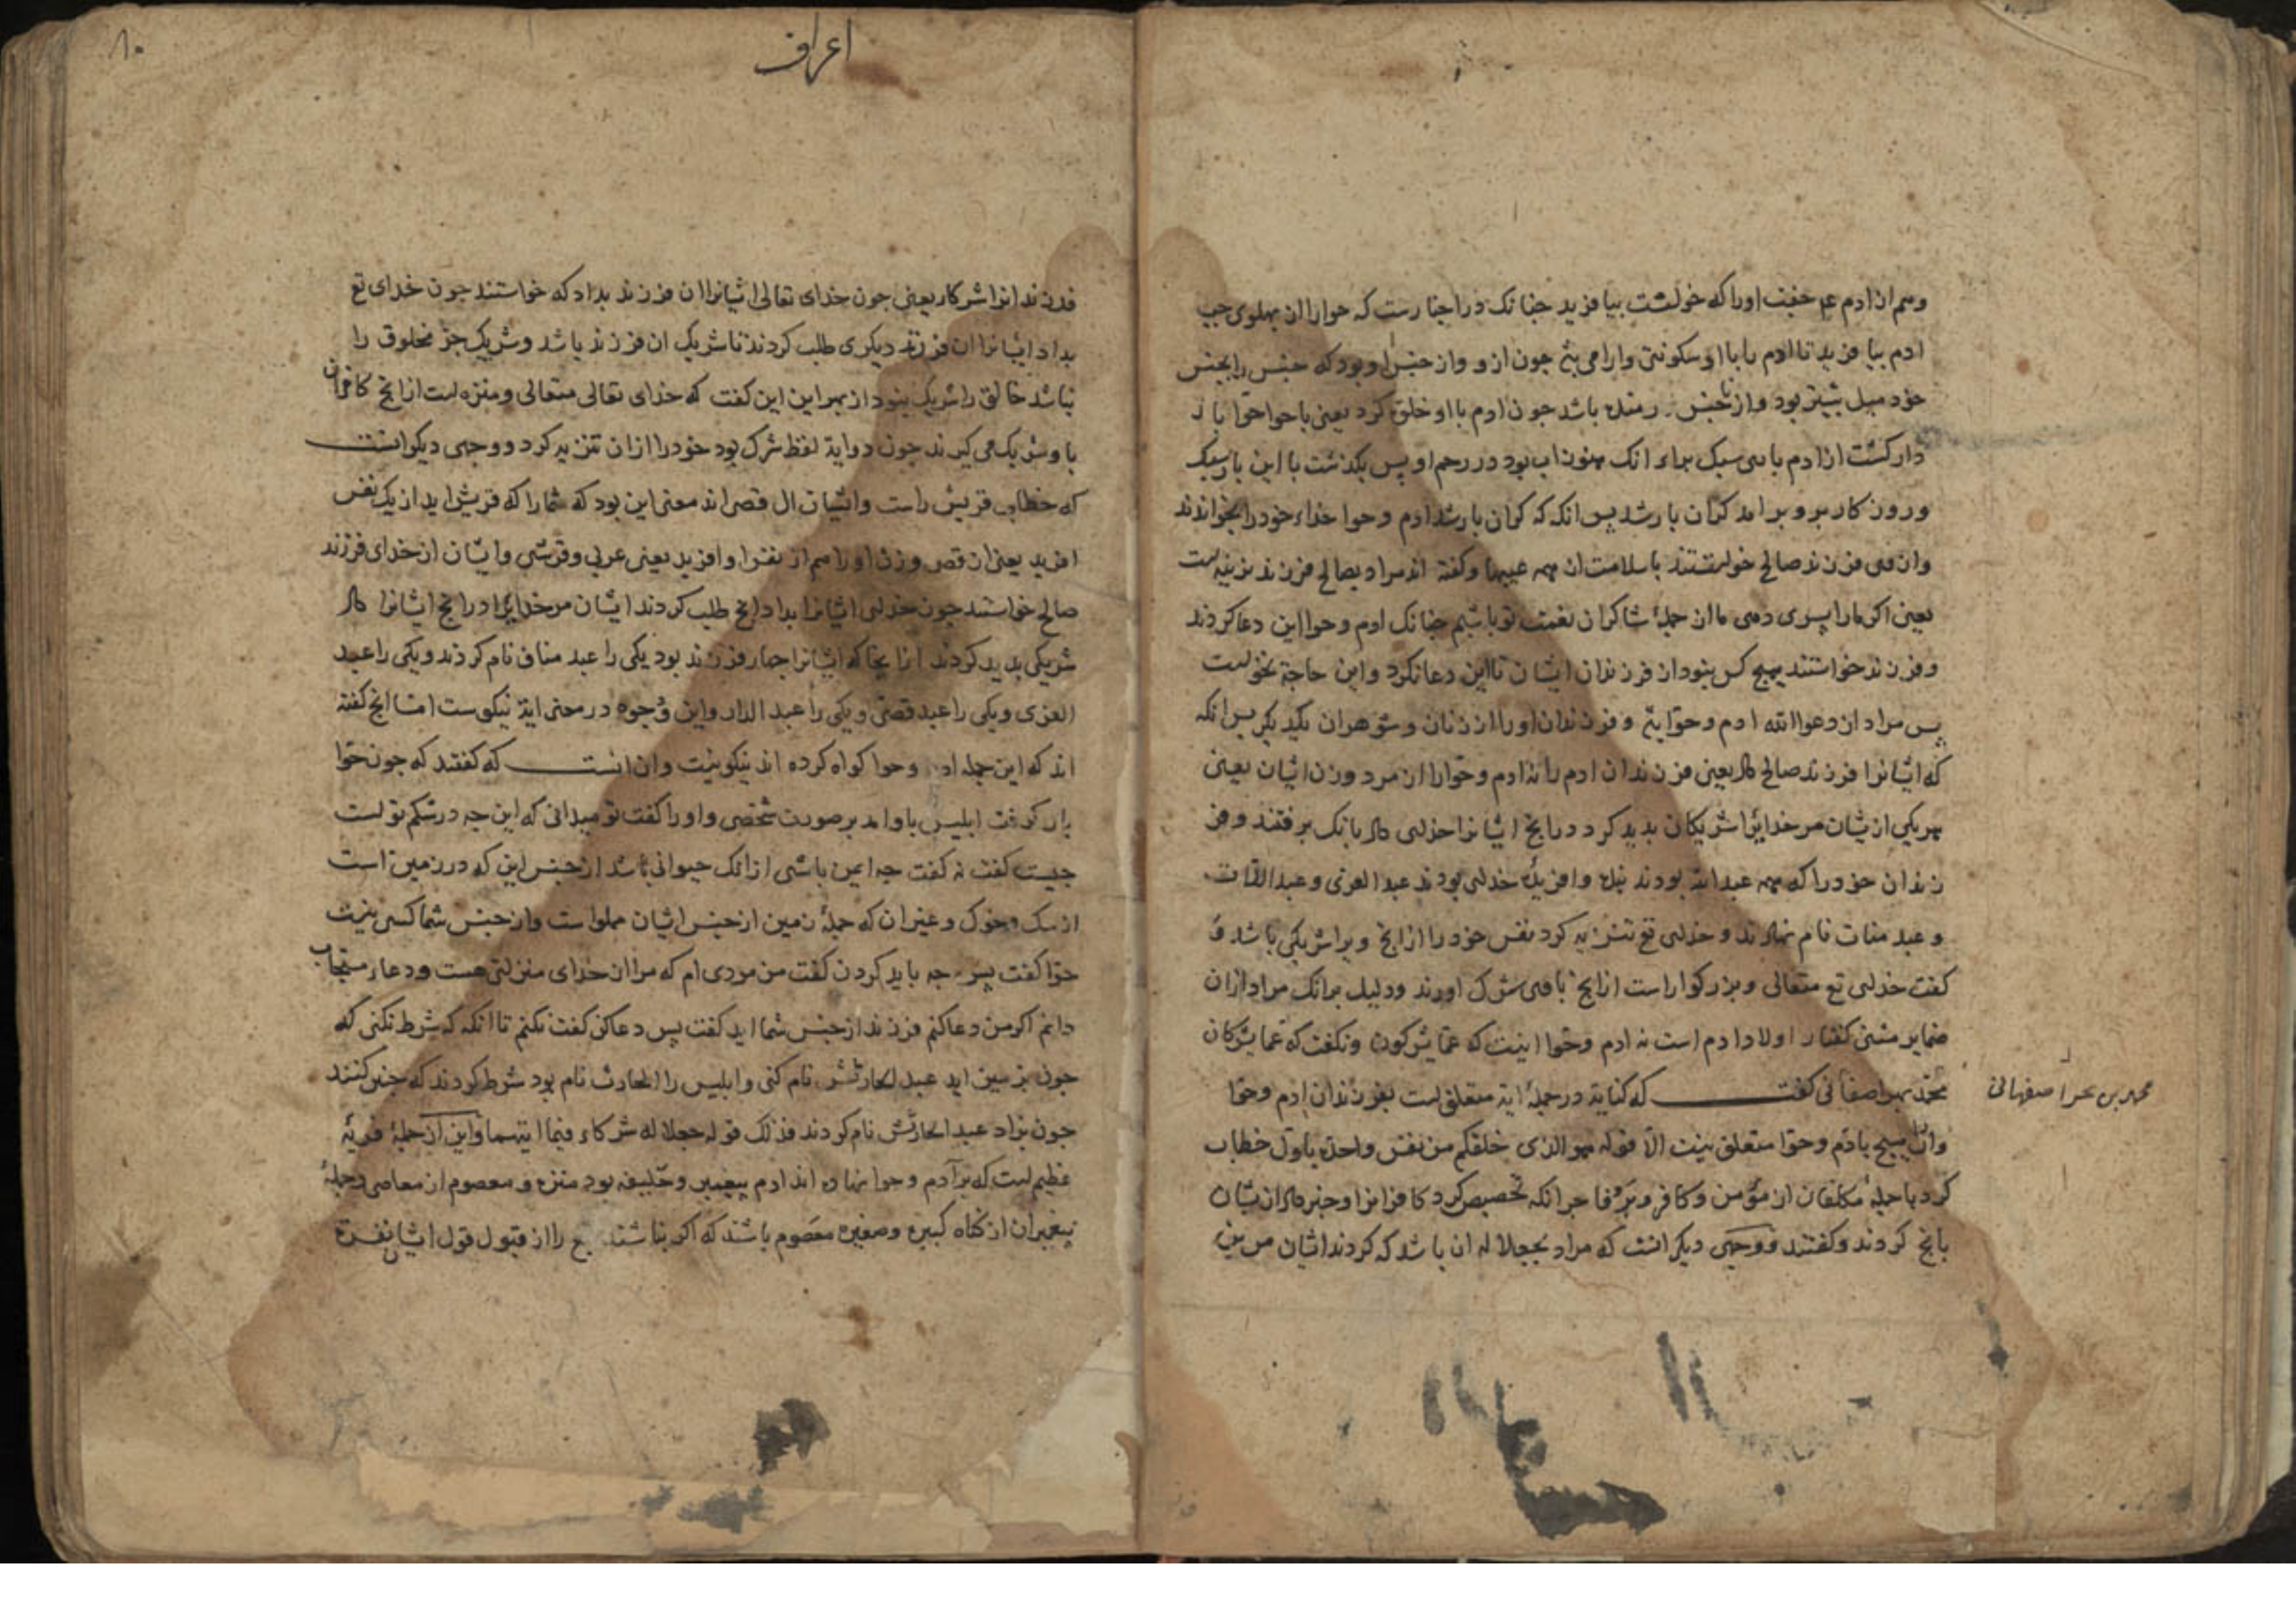 وهم از ادم عم جفت اورا که خواست بیافرید جنانک در اخبارست که حوارا از بهلوی جب
ادم بیافرید تا ادم را با او سکونتی وارامی بود جون ازو واز جنس او بود که جنس را بجنس
خود میل بیشتر بود واز ناجنس رمنده باشد جون ادم با او خلوت کرد یعنی با حوا حوا بار
دار کشت از ادم باری سبک براء انک هنوز اب بود در رحم او بس بکذشت با این بار سبک
وروزکار برو برامد کران بار شد بس انکه که کران بار شد ادم وحوا خداء خودرا بخواندند
وازو فرزند صالح خواستند باسلامت از همه عیبها وکفته اند مراد بصالح فرزند نرینه است
یعنی اکر مارا بسری دهی ما از جملهٔ شاکران نعمت تو باشیم جنانک ادم وحوا این دعا کردند
وفرزند خواستند هیج کس نبود از فرزندان ایشان تا این دعا نکرد واین حاجة نخواست
بس مراد از دعوا الله ادم وحوا اند وفرزندان او را از زنان وشوهران یکدیکر بس انکه
که ایشانرا فرزند صالح داد یعنی فرزندان ادم را نه ادم وحوارا از مرد وزن ایشان یعنی
هریکی ازیشان مر خدایرا شریکان بدید کرد درانج ایشانرا خدای داد بانک برفتند وفر
زندان خودرا که همه عبد الله بودند بنده وافریدهٔ خدای بودند عبد العزی وعبد اللات
وعبد منات نام نهادند وخدای تع تنزیه کرد نفس خودرا ازانج ویرا شریکی باشد و
کفت خدای تع متعالی وبزرکوارست ازانج باوی شرک اورند ودلیل برانک مراد ازان
ضمایر مثنی کفتار اولاد ادم است نه ادم وحوا اینست که عما یشرکون ونکفت که عما یشرکان
محمد بحر اصفهانی کفت که کنایة در جملهٔ ایة متعلق است بفرزندان ادم وحوا
محمد بن بحر اصفهانی
واز هیج بادم وحوا متعلق نیست الا قوله هو الذی خلقکم من نفس واحدة باول خطاب
کرد با جملهٔ مکلفان از مؤمن وکافر وبر وفاجر انکه تخصیص کرد کافرانرا وخبر داد ازیشان
بانج کردند وکفتند ووجهی دیکر انست که مراد بجعلا له ان باشد که کردند ایشان مر این
اعراف
۸۰
فرزند انرا شرکا یعنی جون خدای تعالی ایشانرا ان فرزند بداد که خواستند جون خدای تع
بداد ایشانرا ان فرزند دیکری طلب کردند تا شریک ان فرزند باشد وشریک جز مخلوق را
نباشد خالق را شریک نبود از بهر این این کفت که خدای تعالی متعالی ومنزه است ازانج کافران
با وی شریک می کیرند جون در ایة لفظ شرک بود خودرا ازان تنزیه کرد ووجهی دیکر انست
که خطاب قریش راست وایشان ال قصی اند معنی این بود که شمارا که قریش اید از یک نفس
افرید یعنی از قصی وزن او را هم از نفس او افرید یعنی عربی وقرشی وایشان از خدای فرزند
صالح خواستند جون خدای ایشانرا بداد انج طلب کردند ایشان مر خدایرا درانج ایشانرا داد
شریکی بدید کردند ازانجا که ایشانرا جهار فرزند بود یکی را عبد مناف نام کردند ویکی را عبد
العزی ویکی را عبد قصی ویکی را عبد الدار واین وجوه در معنی ایة نیکوست اما انج کفته
اند که این جمله ادم وحوا کواه کرده اند نیکو نیست وان انست که کفتند که جون حوا
بار کرفت ابلیس باو امد بر صورت شخصی واورا کفت تو میدانی که این جه در شکم تو است
جیست کفت نه کفت جه ایمن باشی ازانک حیوانی باشد از جنس این که در زمین است
از سک وخوک وغیر ان که جملهٔ زمین از جنس ایشان مملوست واز جنس شما کسی نیست
حوا کفت بس جه باید کردن کفت من مردی ام که مرا از خدای منزلتی هست ودعاء مستجاب
دانم اکر من دعا کنم فرزند از جنس شما اید کفت بس دعا کن کفت نکنم تا انکه که شرط نکنی که
جون بزمین اید عبد الحارثش نام کنی وابلیس را الحارث نام بود شرط کردند که جنین کنند
جون بزاد عبد الحارثش نام کردند فذلک قوله جعلا له شرکاء فیما اتیهما واین از جملهٔ فریهٔ
عظیم است که بر آدم وحوا نهاده اند ادم بیغمبر وخلیفه بود منزه ومعصوم از معاصی وجملهٔ
بیغمبران از کناه کبیره وصغیره معصوم باشند که اکر نباشند را از قبول قول ایشان نفرة